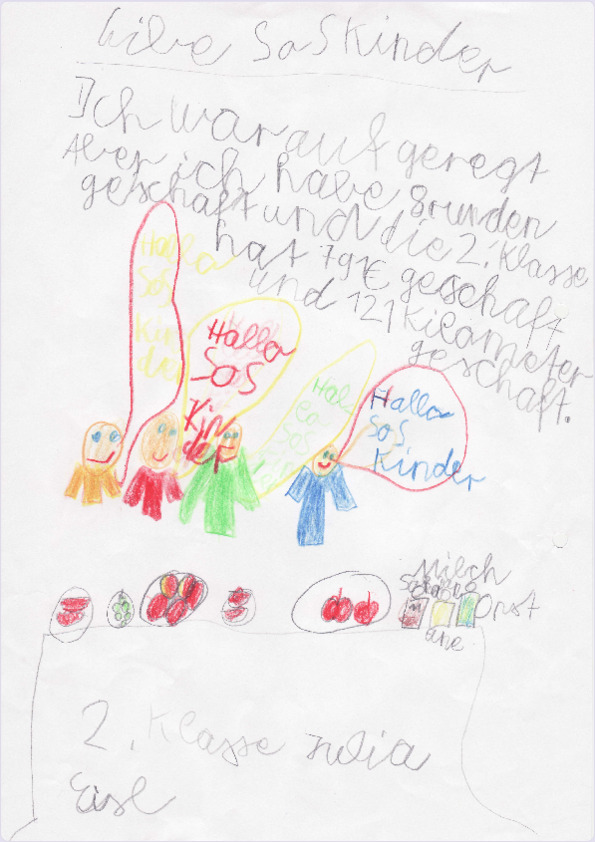 Liebe SoS Kinder
Ich war auf geregt
Aber ich habe 8 runden
geschaft und die 2. Klasse
hat 791€ geschaft
und 121 Kilameter
geschaft.
Hallo
SoS
Kin
der
Hallo
SoS
Kin
der
Hall
o
SoS
Hallo
SoS
Kinder
Milch
Obst
2. Klasse Julia
Eisl